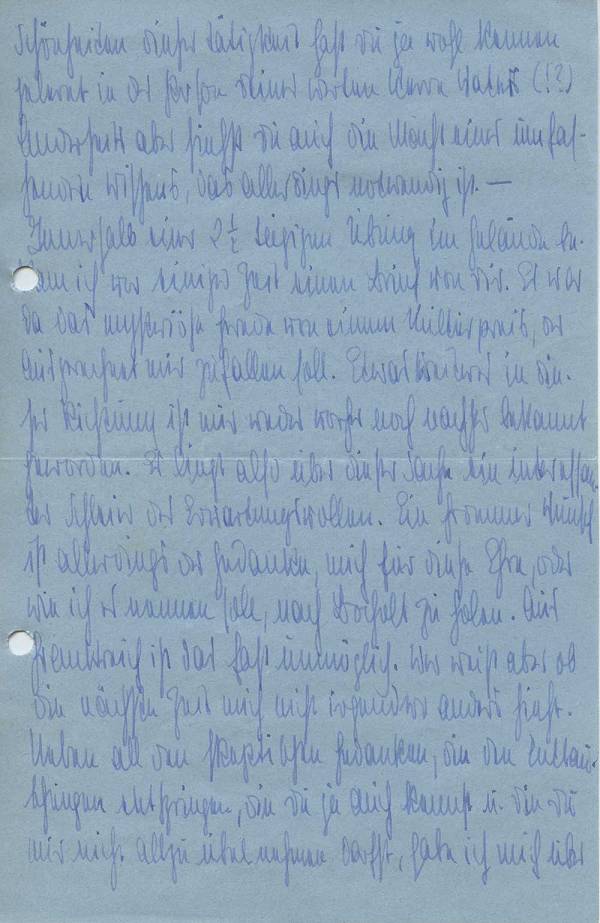 Schönheiten dieser Tätigkeit hast du ja wohl kennen
gelernt in der Person deines werten Herrn Vaters (!?)
Anderseits aber siehst du auch die Macht eines umfas-
senden Wissens, das allerdings notwendig ist. —
Innerhalb einer 2 ½ tägigen Übung im Gelände be-
kam ich vor einiger Zeit einen Brief von dir. Es war
da das mysteriöse Gerede von einem Kulturpreis, der
ausgerechnet mir zufallen soll. Etwas Konkretes in die-
ser Richtung ist mir weder vorher noch nachher bekannt
geworden. Es liegt also über dieser Sache ein interessan-
ter Schleier des Erwartungsvollen. Ein frommer Wunsch
ist allerdings der Gedanke, mich für diese Ehre, oder
wie ich es nennen soll, nach Bocholt zu holen. Aus
Frankreich ist das fast unmöglich. Wer weiß aber ob
die nächste Zeit mich nicht irgendwo anders sieht.
Neben all den skeptischen Gedanken, die den Enttäu-
schungen entspringen, die du ja auch kennst u. die du
mir nicht allzu übel nehmen darfst, habe ich mich über